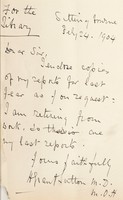 For the
Library
Sittingbourne
July 24. 1904
Dear Sir,
I enclose copies
of my reports for last
year as you request:
I am retiring from
work. So these are
my last reports.
Yours faithfully
Sutton M.D.
M.O.H